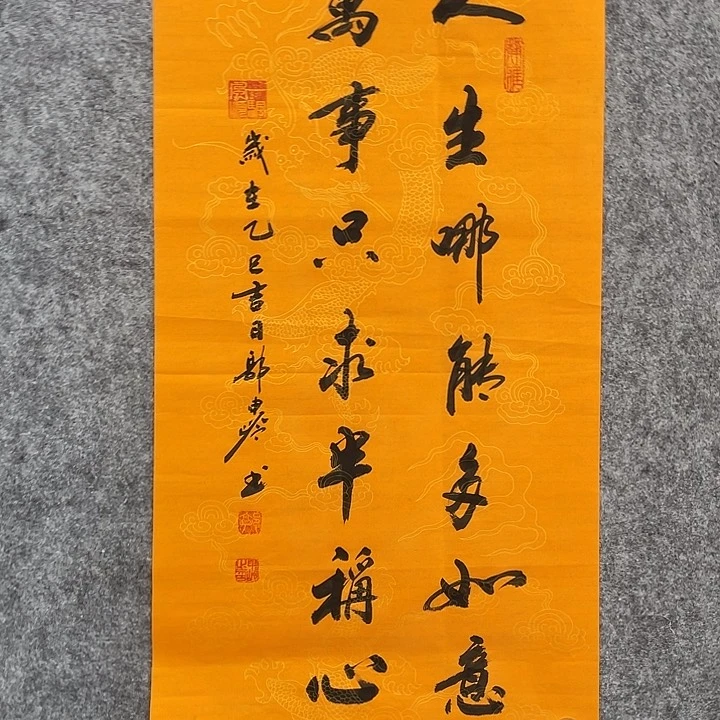 人生哪能多如意
萬事只求半稱心
歲在乙巳吉日郭
书